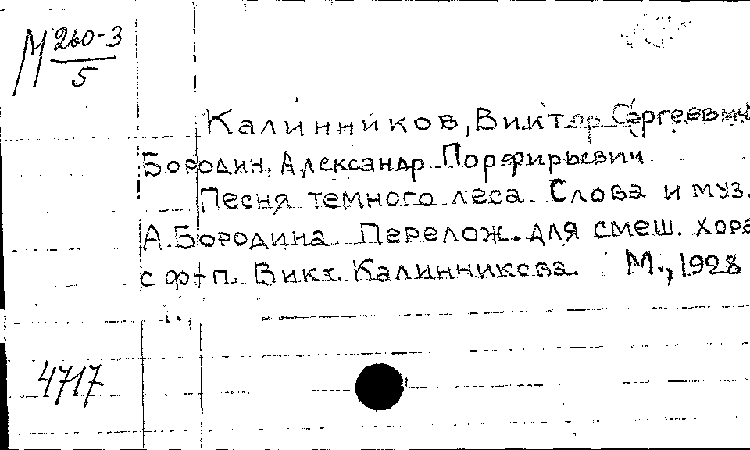 М 260-3
5
Калинников, Виктор Сергеевич
Бородин, Александр Порфирьевич
Песня темного леса. Слова и муз.
А. Бородина. Перелож. для смеш. хора
с ф-п. Викт. Калинникова. М., 1928
4717